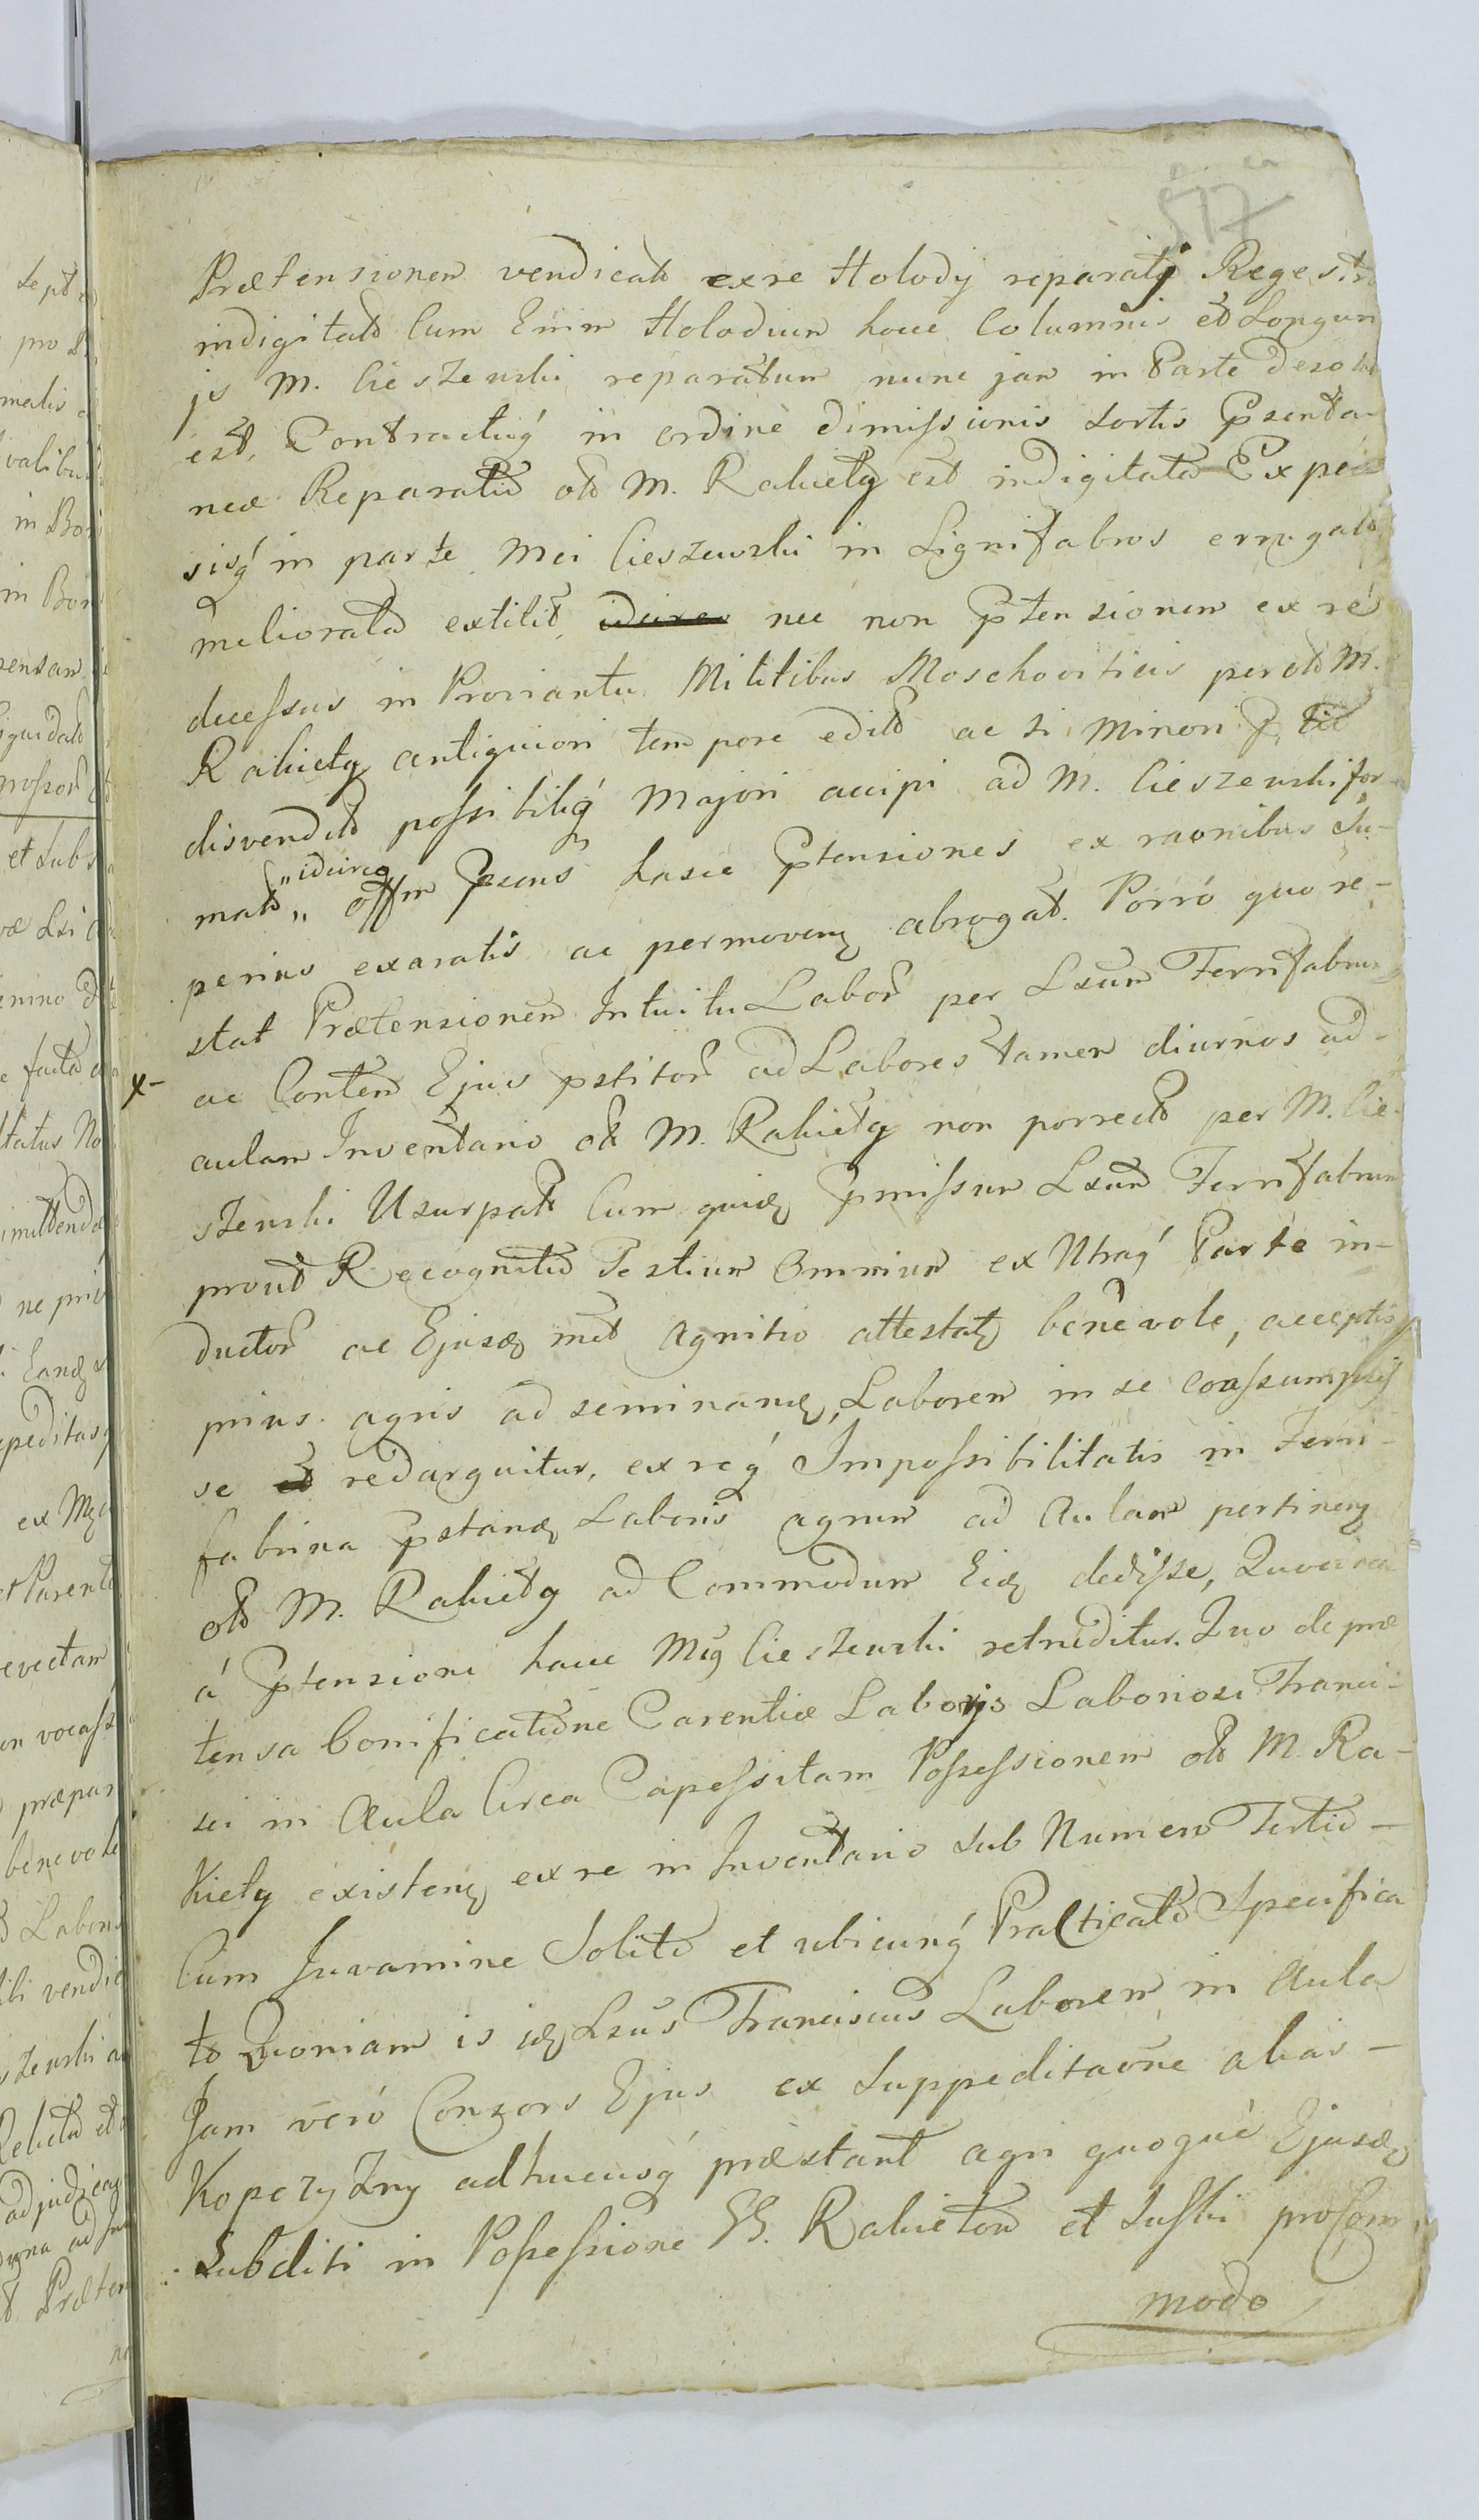 577
Prætensionem vendicatt exre Holody reparatj Regestro
indigitatt Cum Enim Holodium hoce Columnis et Longum
js M. Cieszewski reparatum nunc jam in Parte
est, Contractuq́ in ordine dimissionis Sortis Pzenta
neæ Reparatio ott M. Rakiety est indigitata Expen
sisq́ in parte Mci Cieszewski in Lignifabros errogatt
meliorata extitit, idcirco nec non Ptensionem ex re
decessus in Proviantu Militibus Moschoviticis per ott M.
Rakiety antiquiori tempore edito ac si Minori P.
disvendito possibiliq́ Majori accipi ad M. Cieszewski for
matt „ idcirco „ offm Pzens hasce Ptensiones ex raonibus Su-
perius exaratis ac permoven abrogat. Porró quo re-
stat Prætensionem Intuitu Labor per Lxum Ferrifabrum
x- ac Contem Ejus pstitor ad Labores tamen diurnos ad-
aulam Inventario ott M. Rakiety non porrecto per M. Cie
szewski Usurpatt Cum quidem Pmissum Lxum Ferrifabrum
prout Recognitio Testium Omnium ex Utraq́ Parte in-
ductor ac Ejusdem met agnitio attestat benevole, acceptis
prius agris ad seminand Laborem in se coassumpsis
se et redarguitur, ex req́ Impossibilitatis in Ferri-
fabrina pstand Laboris agrum ad Aulam pertinen
ott M. Rakiety ad Commodum Eid dedisse, Quocirca
á Ptensione hace Mcus Cieszewski retruditur. Quo de præ
tensa bonificatione Carentiæ Laboris Laboriosi Franci-
sci in Aula Circa Capessitam Possessionem ott M. Ra-
kiety existen exre in Inventario Sub Numero Tertio-
Cum Juvamine Solito et ubicunq́ Practicato Specifica
to Quoniam is id Lxus Franciscus Laborem in Aula
Jam veró Conzors Ejus ex Suppeditaone alias-
Kopczyzny adhucusq́ præstant agri quoqué Ejusd
Subditi in Possessione SS. Rakietow et Suski
modo